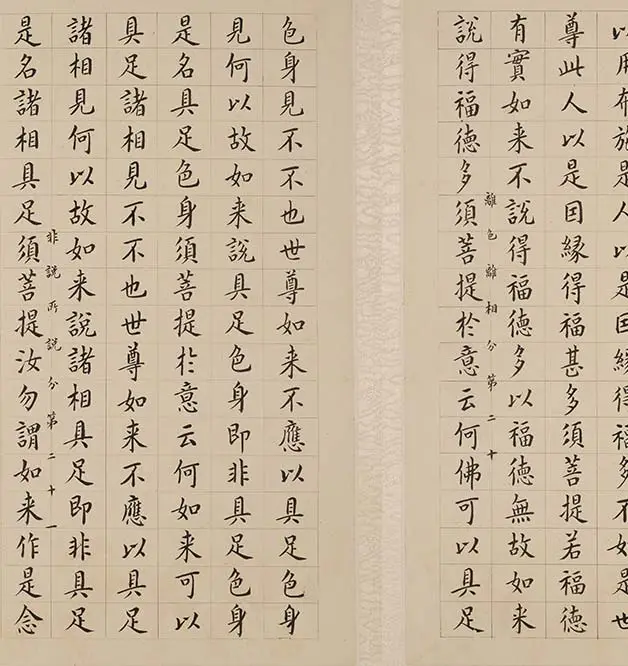 以用布施是人以是因緣得福多不如是世
尊此人以是因緣得福甚多須菩提若福德
有實如来不說得福德多以福德無故如来
離色離相分第二十
說得福德多須菩提於意云何佛可以具足
色身見不不也世尊如来不應以具足色身
見何以故如来說具足色身即非具足色身
是名具足色身須菩提於意云何如来可以
具足諸相見不不也世尊如来不應以具足
諸相見何以故如来說諸相具足即非具足
非說所說分第二十一
是名諸相具足須菩提汝勿謂如来作是念